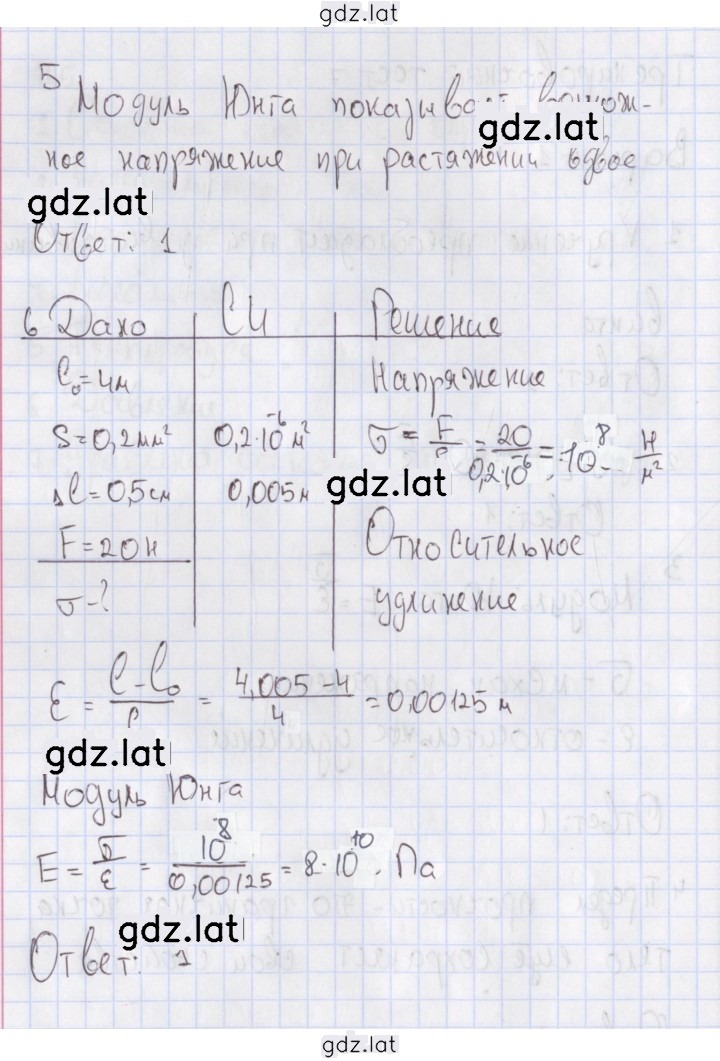 gdz.lat
5
Модуль Юнга показывает
gdz.lat
ное напряжение при растяжении вдвое
gdz.lat
Ответ: 1
6 Дано СИ Решение
l₀=4м Напряжение
S=0,2мм² 0,2·10⁻⁶ м² σ = F/ = 20/0,2·10⁻⁶ = 10⁸ Н/м²
Δl=0,5см 0,005м
gdz.lat
F=20Н Относительное
σ-? удлинение
ε = l-l₀/l = 4,005-4/4 = 0,00125 м
gdz.lat
Модуль Юнга
E = σ/ε = 10⁸/0,00125 = 8·10¹⁰. Па
gdz.lat
Ответ: 1
gdz.lat